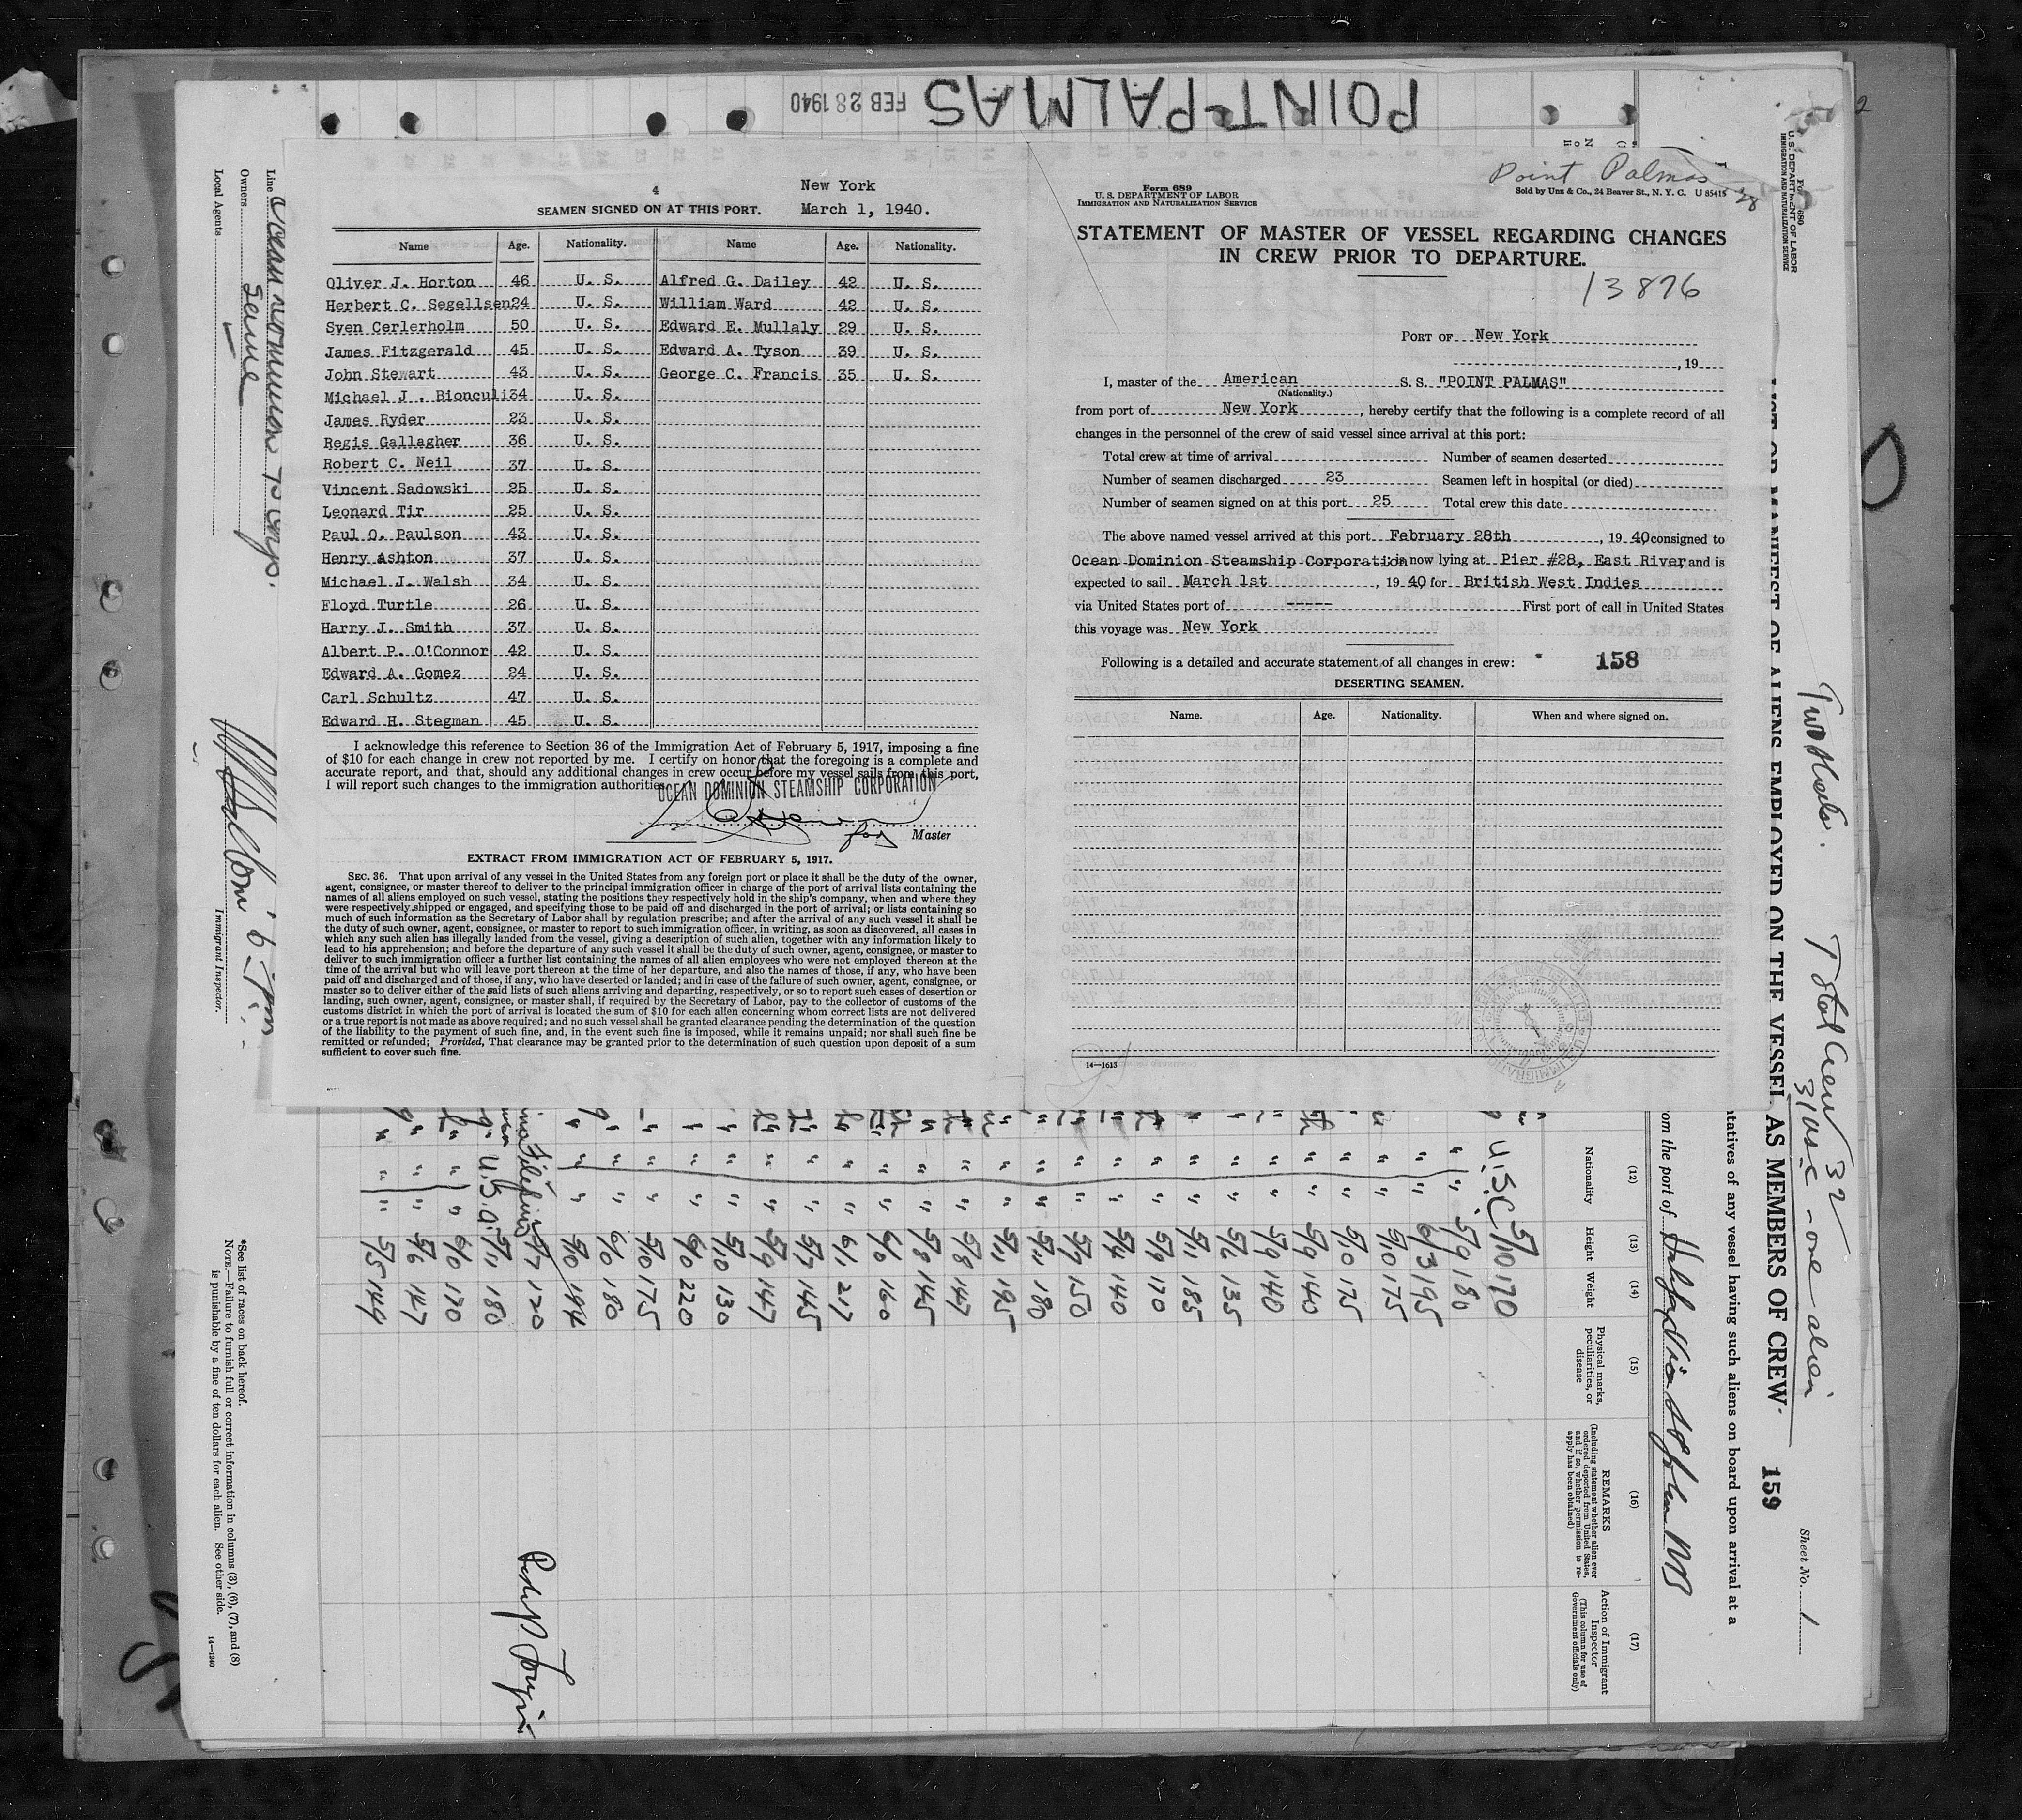 POINT PALMAS FEB 28 1940
4
New York
SEAMEN SIGNED ON AT THIS PORT. March 1, 1940.
Name Age. Nationality. Name Age. Nationality.
Oliver J. Horton 46 U. S. Alfred G. Dailey 42 U. S.
Herbert C. Segellsen 24 U. S. William Ward 42 U. S.
Sven Cerlerholm 50 U. S. Edward E. Mullaly 29 U. S.
James Fitzgerald 45 U. S. Edward A. Tyson 39 U. S.
John Stewart 43 U. S. George C. Francis 35 U. S.
Michael J. Bionculi 34 U. S.
James Ryder 23 U. S.
Regis Gallagher 36 U. S.
Robert C. Neil 37 U. S.
Vincent Sadowski 25 U. S.
Leonard Tir 25 U. S.
Paul O. Paulson 43 U. S.
Henry Ashton 37 U. S.
Michael J. Walsh 34 U. S.
Floyd Turtle 26 U. S.
Harry J. Smith 37 U. S.
Albert P. O'Connor 42 U. S.
Edward A. Gomez 24 U. S.
Carl Schultz 47 U. S.
Edward H. Stegman 45 U. S.
I acknowledge this reference to Section 36 of the Immigration Act of February 5, 1917, imposing a fine
of $10 for each change in crew not reported by me. I certify on honor that the foregoing is a complete and
accurate report, and that, should any additional changes in crew occur before my vessel sails from this port,
I will report such changes to the immigration authorities.
OCEAN DOMINION STEAMSHIP CORPORATION
for Master
EXTRACT FROM IMMIGRATION ACT OF FEBRUARY 5, 1917.
SEC. 36. That upon arrival of any vessel in the United States from any foreign port or place it shall be the duty of the owner,
agent, consignee, or master thereof to deliver to the principal immigration officer in charge of the port of arrival lists containing the
names of all aliens employed on such vessel, stating the positions they respectively hold in the ship's company, when and where they
were respectively shipped or engaged, and specifying those to be paid off and discharged in the port of arrival; or lists containing so
much of such information as the Secretary of Labor shall by regulation prescribe; and after the arrival of any such vessel it shall be
the duty of such owner, agent, consignee, or master to report to such immigration officer, in writing, as soon as discovered, all cases in
which any such alien has illegally landed from the vessel, giving a description of such alien, together with any information likely to
lead to his apprehension; and before the departure of any such vessel it shall be the duty of such owner, agent, consignee, or master to
deliver to such immigration officer a further list containing the names of all alien employees who were not employed thereon at the
time of the arrival but who will leave port thereon at the time of her departure, and also the names of those, if any, who have been
paid off and discharged and of those, if any, who have deserted or landed; and in case of the failure of such owner, agent, consignee, or
master so to deliver either of the said lists of such aliens arriving and departing, respectively, or so to report such cases of desertion or
landing, such owner, agent, consignee, or master shall, if required by the Secretary of Labor, pay to the collector of customs of the
customs district in which the port of arrival is located the sum of $10 for each alien concerning whom correct lists are not delivered
or a true report is not made as above required; and no such vessel shall be granted clearance pending the determination of the question
of the liability to the payment of such fine, and, in the event such fine is imposed, while it remains unpaid; nor shall such fine be
remitted or refunded; Provided, That clearance may be granted prior to the determination of such question upon deposit of a sum
sufficient to cover such fine.
Point Palmas
28
Form 689
U. S. DEPARTMENT OF LABOR
IMMIGRATION AND NATURALIZATION SERVICE
Sold by Unz & Co., 24 Beaver St., N. Y. C. U 85415
STATEMENT OF MASTER OF VESSEL REGARDING CHANGES
IN CREW PRIOR TO DEPARTURE.
13876
PORT OF New York
, 19
I, master of the American S. S. "POINT PALMAS"
(Nationality.)
from port of New York, hereby certify that the following is a complete record of all
changes in the personnel of the crew of said vessel since arrival at this port:
Total crew at time of arrival Number of seamen deserted
Number of seamen discharged 23 Seamen left in hospital (or died)
Number of seamen signed on at this port 25 Total crew this date
The above named vessel arrived at this port February 28th, 19 40 consigned to
Ocean Dominion Steamship Corporation now lying at Pier #28, East River and is
expected to sail March 1st, 19 40 for British West Indies
via United States port of ----- First port of call in United States
this voyage was New York
Following is a detailed and accurate statement of all changes in crew: 158
DESERTING SEAMEN.
Name. Age. Nationality. When and where signed on.
14—1613
Line Ocean Dominion SS Corp.
Owners Same
Local Agents
Immigrant Inspector.
*See list of races on back hereof.
NOTE.—Failure to furnish full or correct information in columns (3), (6), (7), and (8)
is punishable by a fine of ten dollars for each alien. See other side.
14—1240
U. S. DEPARTMENT OF LABOR
IMMIGRATION AND NATURALIZATION SERVICE
LIST OR MANIFEST OF ALIENS EMPLOYED ON THE VESSEL AS MEMBERS OF CREW
159
Sheet No. 1
Total Crew 32
31 USC - one alien
tatives of any vessel having such aliens on board upon arrival at a
om the port of Halifax St John NB
(12) Nationality
(13) Height
(14) Weight
(15) Physical marks, peculiarities, or disease
(16) REMARKS
(Including statement whether alien ever ordered deported from United States, and if so, whether permission to reapply has been obtained)
(17) Action of Immigrant Inspector
(This column for use of Government officials only)
U.S.C 5/10 170
5/9 180
6/3 195
5/10 175
5/10 175
5/9 140
5/9 140
5/6 135
5/11 185
5/9 170
5/4 140
5/7 150
5/11 180
5/11 195
5/8 147
5/8 145
6/0 160
6/1 217
5/7 145
5/9 147
5/10 130
6/0 220
5/10 175
6/0 180
5/10 194
Filipino 5/7 120
U.S.C. 5/11 180
6/0 170
5/6 147
5/5 144